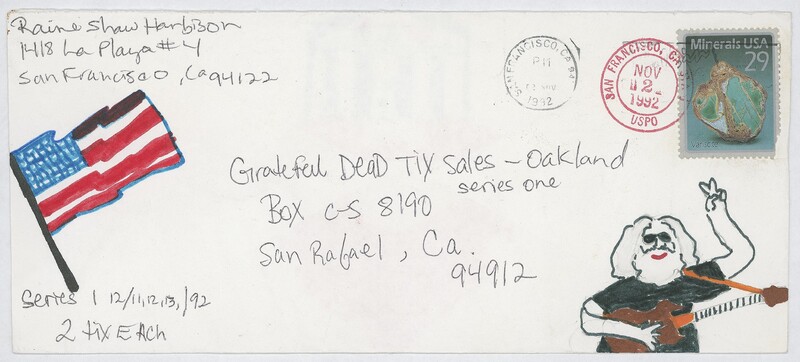 Raine Shaw Harbison
1418 La Playa # 4
San Francisco, Ca 94122
SAN FRANCISCO, CA 94
PM
1992
SAN FRANCISCO, CA
NOV
02
1992
USPO
Minerals USA
29
Variscite
Grateful DeaD Tix Sales - Oakland
series one
Box c-s 8190
San Rafael, Ca.
94912
Series 1 12/11,12,13,/92
2 tix EACH